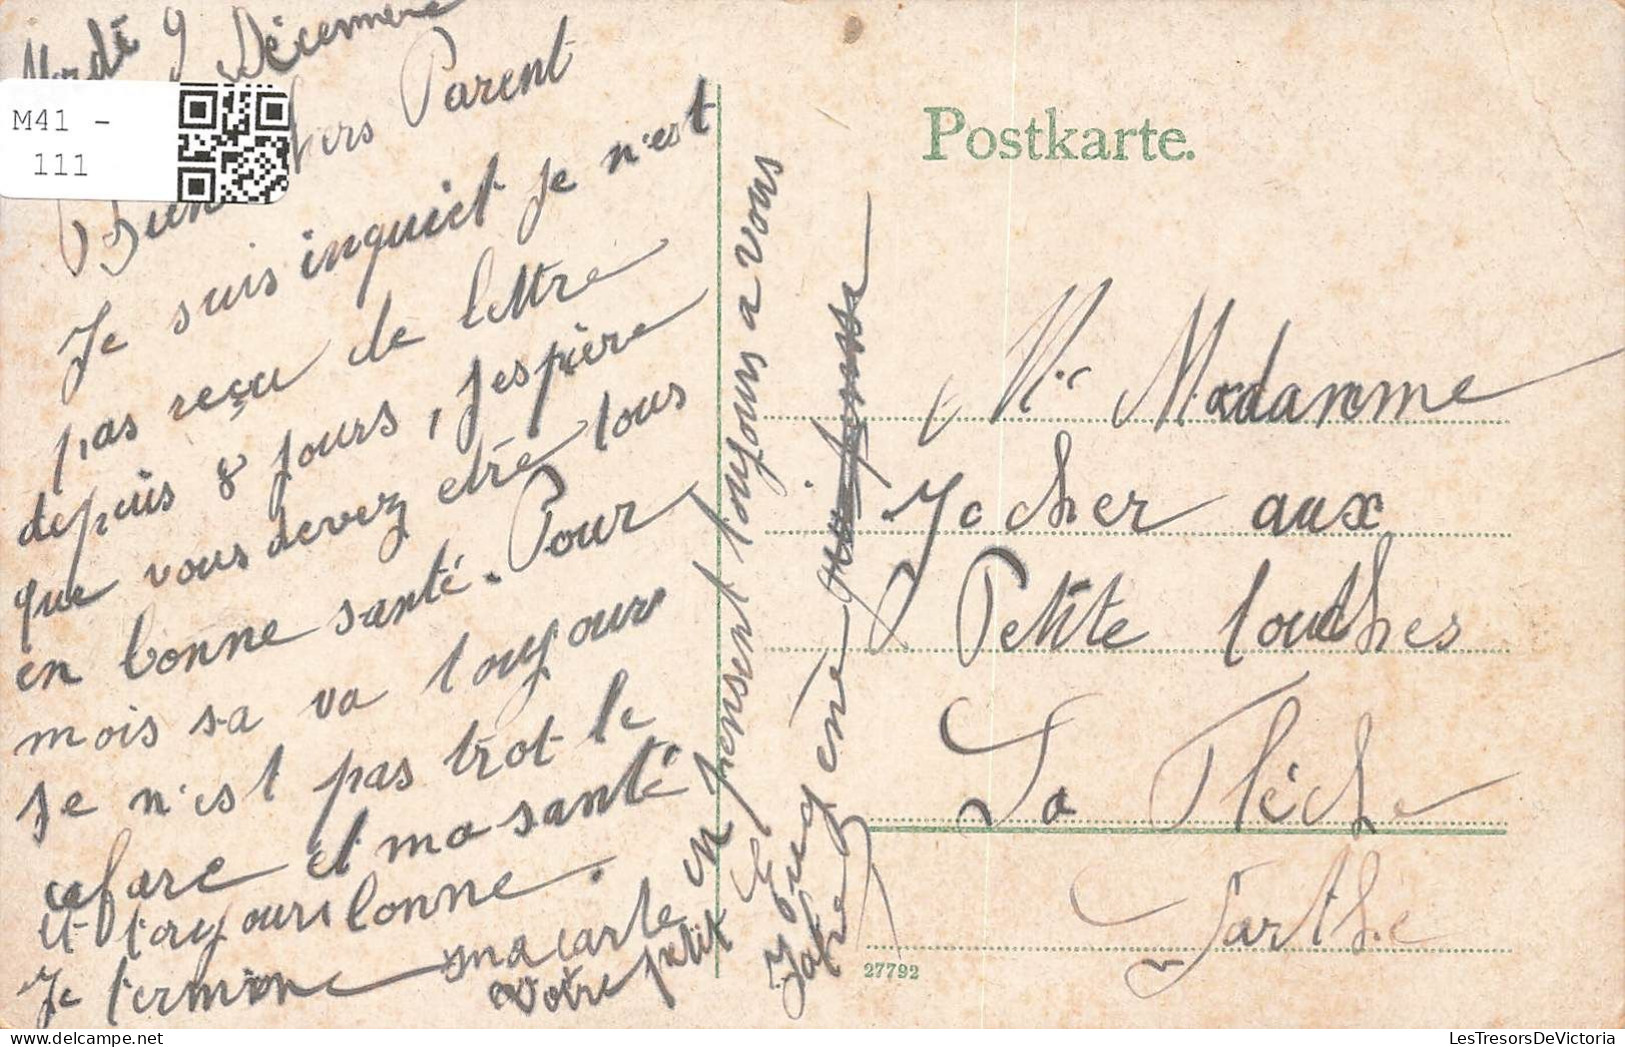 Mardi 9 Décembre
M41 -
111
Bien chers Parent
Je suis inquiet je n'est
pas reçu de lettre
depuis 8 jours, j'espière
que vous devez etre tous
en bonne santé. Pour
mois sa va toujour
se n'est pas trot le
cafare et ma santé
et toujours bonne.
Je termine ma carte en pensent toujours a vous
votre petit
Eugène
Postkarte.
Me Madamme
aux
Petite Touches
La Flèche
Sarthe
27792
LesTresorsDeVictoria.com